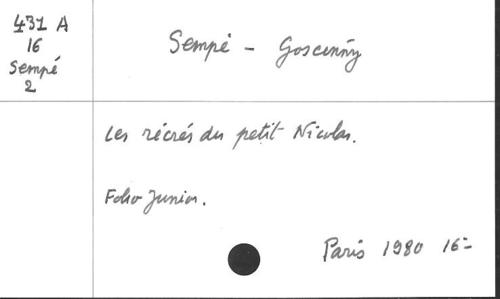 431 A
16
Sempé
2
Sempé - Goscinny
Les récrés du petit Nicolas.
Folio Junior.
Paris 1980 16=